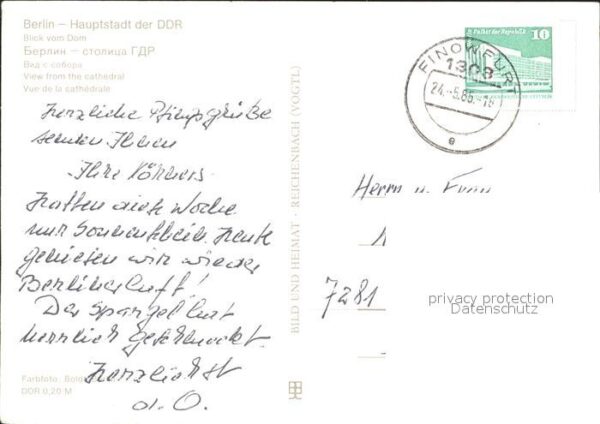 Berlin – Hauptstadt der DDR
Blick vom Dom
Берлин – столица ГДР
Вид с собора
View from the cathedral
Vue de la cathédrale
Herzliche Pfingstgrüße
senden Ihnen
Ihre Körners
Hatten diese Woche
nur Sonnenschein. Heute
genießen wir wieder
Berliner Luft!
Der Spargel hat
herrlich geschmeckt.
Herzlichst
d. O.
Farbfoto:
DDR 0,20 M
BILD UND HEIMAT · REICHENBACH (VOGTL)
FINOWFURT
1303
24.-5.85.-18
e
Palast der Republik 10
Herrn u. Frau
7281
privacy protection
Datenschutz